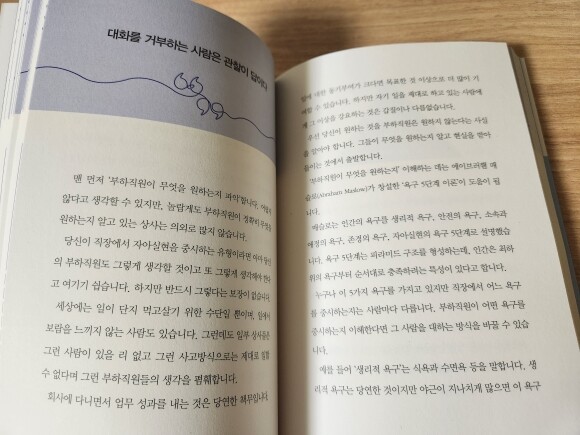 대화를 거부하는 사람은 관찰이 답이다
맨 먼저 '부하직원이 무엇을 원하는지 파악'합니다.
않다고 생각할 수 있지만, 놀랍게도 부하직원이 정확히 무엇을
원하는지 알고 있는 상사는 의외로 많지 않습니다.
당신이 직장에서 자아실현을 중시하는 유형이라면 아마 당신
의 부하직원도 그렇게 생각할 것이고 또 그렇게 생각해야 한다
고 여기기 쉽습니다. 하지만 반드시 그렇다는 보장이 없습니다.
세상에는 일이 단지 먹고살기 위한 수단일 뿐이며, 일에서
보람을 느끼지 않는 사람도 있습니다. 그런데도 일부 상사들은
그런 사람이 있을 리 없고 그런 사고방식으로는 제대로 일할
수 없다며 그런 부하직원들의 생각을 폄훼합니다.
회사에 다니면서 업무 성과를 내는 것은 당연한 책무입니다.
일에 대한 동기부여가 크다면 목표한 것 이상으로 더 많이 기
여할 수 있습니다. 하지만 자기 일을 제대로 하고 있는 사람에
게 그 이상을 강요하는 것은 갑질이나 다름없습니다.
우선 당신이 원하는 것을 부하직원은 원하지 않는다는 사실
을 알아야 합니다. 그들이 무엇을 원하는지 알고 현실을 받아
들이는 것에서 출발합니다.
'부하직원이 무엇을 원하는지' 이해하는 데는 에이브러햄 매
슬로(Abraham Maslow)가 창설한 '욕구 5단계 이론'이 도움이 됩
니다.
매슬로는 인간의 욕구를 생리적 욕구, 안전의 욕구, 소속과
애정의 욕구, 존경의 욕구, 자아실현의 욕구 5단계로 설명했습
니다. 욕구 5단계는 피라미드 구조를 형성하는데, 인간은 최하
위의 욕구부터 순서대로 충족하려는 특성이 있다고 합니다.
누구나 이 5가지 욕구를 가지고 있지만 직장에서 어느 욕구
를 중시하는지는 사람마다 다릅니다. 부하직원이 어떤 욕구를
중시하는지 이해한다면 그 사람을 대하는 방식을 바꿀 수 있습
니다.
예를 들어 '생리적 욕구'는 식욕과 수면욕 등을 말합니다. 생
리적 욕구는 당연한 것이지만 야근이 지나치게 많으면 이 욕구